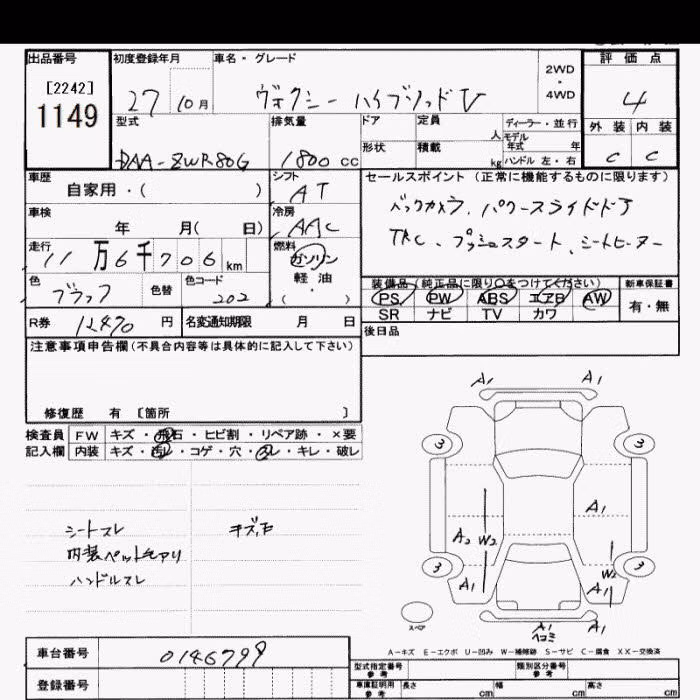 出品番号 初度登録年月 車名・グレード 評価点
[2242] 1149
27 10月 ヴォクシー ハイブリッドV 2WD・4WD 4
型式 排気量 ドア 定員 人 ディーラー・並行 外装 内装
モデル年式 年
形状 積載 kg ハンドル 左・右
DAA-ZWR80G 1800 cc C C
車歴 シフト セールスポイント (正常に機能するものに限ります)
自家用・( ) AT
バックカメラ、パワースライドドア
車検 冷房
年 月( 日) AAC
TRC、プッシュスタート、シートヒーター
走行 燃料
11万6千706km ガソリン
軽油
・( )
装備品(純正品に限り○をつけてください) 新車保証書
色 色替 色コード
ブラック 202
PS PW ABS エアB AW 有・無
SR ナビ TV カワ
R券 12470 円 名変通知期限 月 日
後日品
注意事項申告欄(不具合内容等は具体的に記入して下さい)
修復歴 有 [箇所 ]
検査員 FW キズ・飛石・ヒビ割・リペア跡・×要
記入欄 内装 キズ・汚レ・コゲ・穴・スレ・キレ・破レ
シートスレ キズ、凹
内装ペット毛アリ
ハンドルスレ
A1 A1
3 3
A1
A2 W2
3 W2 3
A1 A1
スペア A1
ヘコミ
A-キズ E-エクボ U-凹み W-補修跡 S-サビ C-腐食 XX-交換済
車台番号 0146799
登録番号
型式指定番号 参考 類別区分番号 参考
車庫証明用 参考 長さ cm 幅 cm 高さ cm